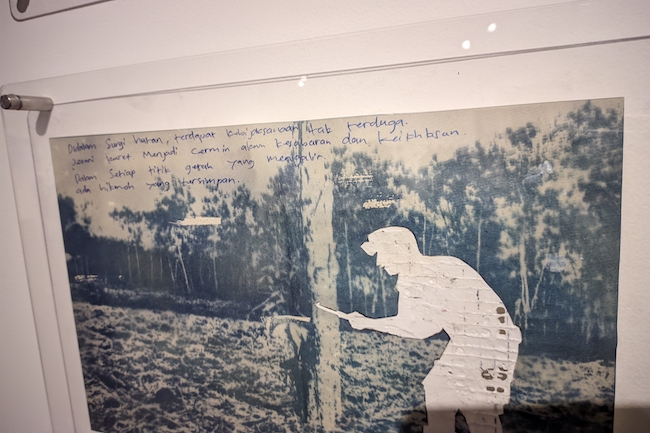 Didalam Sunyi hutan, terdapat kebijaksanaan tak terduga.
Penani karet Menjadi cermin alam kesabaran dan keikhlasan.
Dalam Setiap titik getah yang mengalir
ada hikmah yang tersimpan.